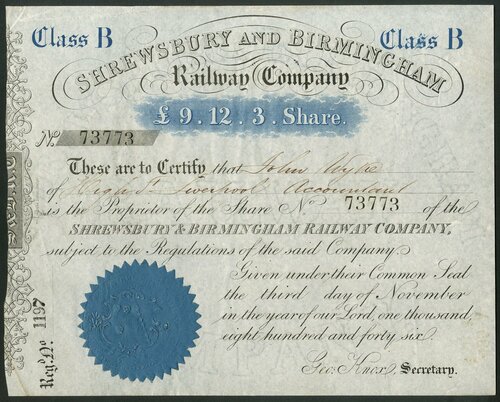 Class B
Class B
SHREWSBURY AND BIRMINGHAM
Railway Company
£ 9 . 12 . 3 . Share.
No. 73773
These are to Certify that John Wylie
of High St. Liverpool Accountant
is the Proprietor of the Share No. 73773 of the
SHREWSBURY & BIRMINGHAM RAILWAY COMPANY,
subject to the Regulations of the said Company.
Given under their Common Seal
the third day of November
in the year of our Lord, one thousand,
eight hundred and forty six.
Geo. Knox, Secretary.
Regd. No. 1197